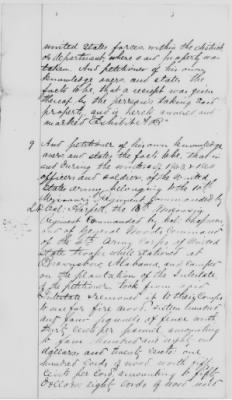 united States forces within the district
or department, where said property was
taken. And petitioner of his own
knowledge avers and states the
facts to be, that a receipt was given
thereof by the persons taking said
property, and is hereto annexed and
marked Exhibit
9 And petitioner of his own knowledge
avers and states the facts to be, that in
and during the winter of 1863 & 1864
officers and soldiers of the United
States army, belonging to the 10th
Missouri Regiment Commanded by
Col. the 18th Missouri
Regiment Commanded by
and of General Woods Command
of the Army Corps of United
States troops while stationed at
Alabama, and camped
on the plantation of the Intestate
of the petitioner, took from said
Intestate & removed it to their Camps
to use for fire wood. Sixteen hundred
and four pounds of
cents per pound amounting
to four hundred and eighty one
dollars and twenty cents: one
hundred Cords of wood worth fifty
cents per Cord, amounting to fifty
Dollars, eighty Cords of wood